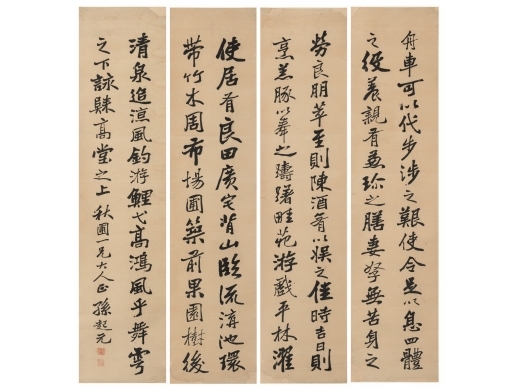 舟車可以代步涉之艱使令足以息四體
之役養親有兼珍之膳妻孥無苦身之
勞良朋萃至則陳酒肴以娛之佳時吉日則
烹羔豚以奉之躊躇畦苑游戲平林濯
使居有良田廣宅背山臨流溝池環
帶竹木周布場圃築前果園樹後
清泉追涼風釣游鯉弋高鴻風乎舞雩
之下詠歸高堂之上 秋圃一兄大人正 孫起元